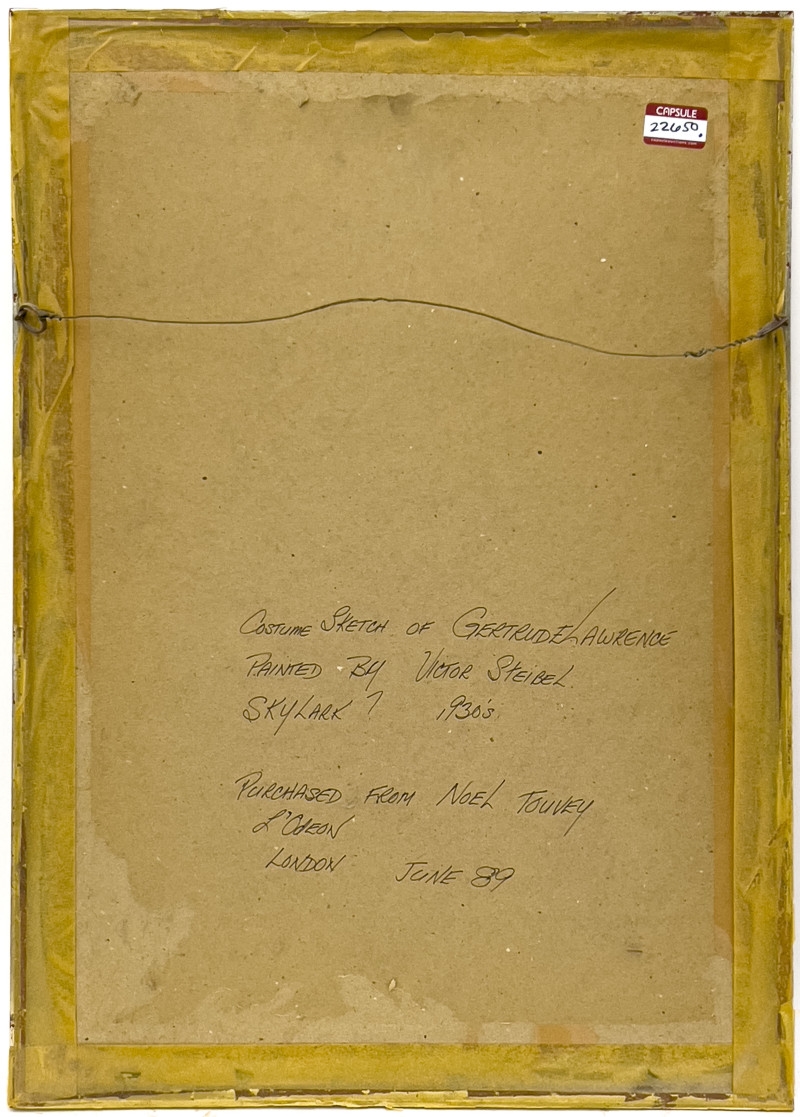 CAPSULE
22650.
COSTUME SKETCH OF GERTRUDE LAWRENCE
PAINTED BY VICTOR STEIBEL
SKYLARK ? 1930's
PURCHASED FROM NOEL TOUVEY
L'ODEON
LONDON JUNE 89